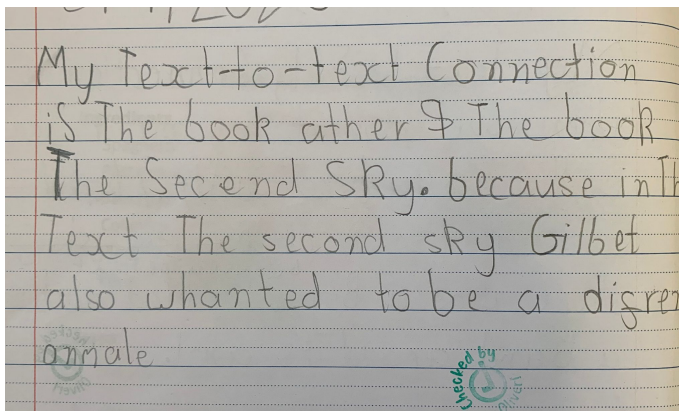 My Text-to-text Connection
is The book ather & The book
The Second Sky. because in Th
Text The second sky Gilbet
also whanted to be a difren
anmale
Checked by
Oliveri